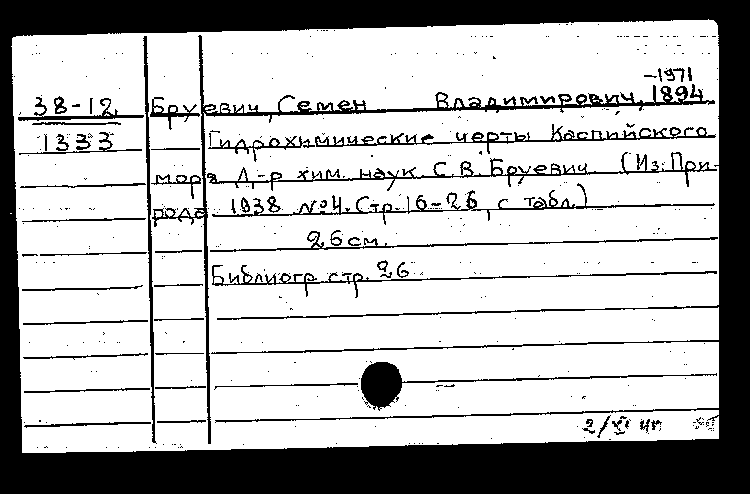 -1971
38-12 Бруевич, Семен Владимирович, 1894
1333 Гидрохимические черты Каспийского
моря Д-р хим. наук С.В. Бруевич (Из: При-
рода 1938 №4. Стр. 16-26, с табл.)
26 см.
Библиогр стр. 26
2/XI